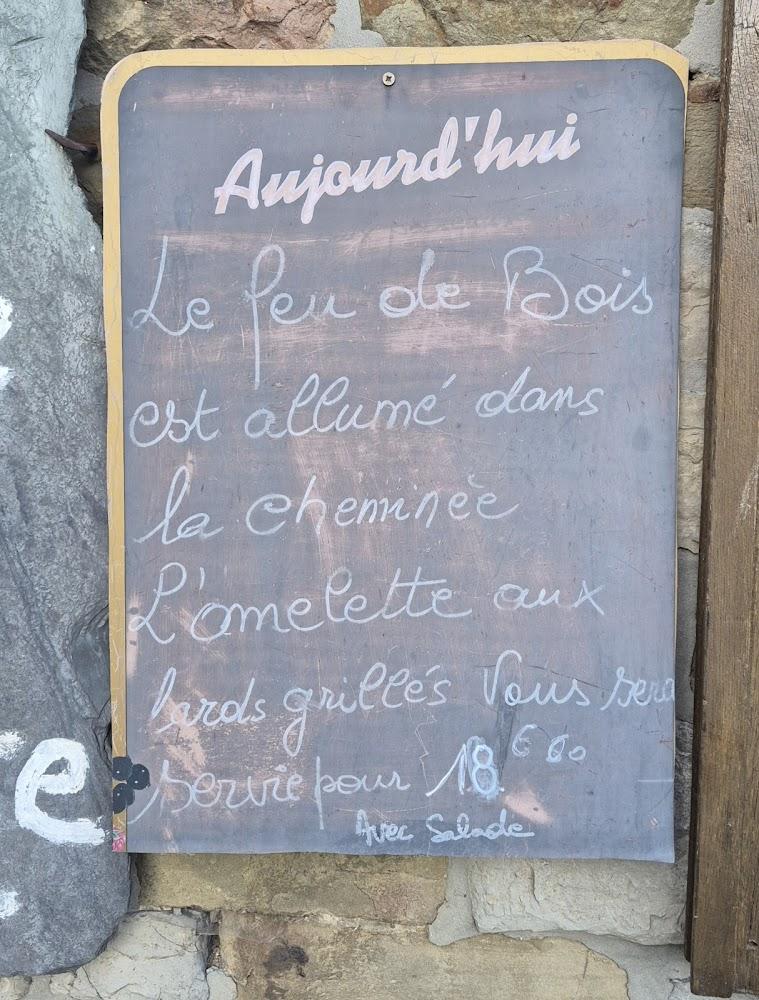 Aujourd'hui
Le feu de Bois
est allumé dans
la cheminée
L'omelette aux
lards grillés Vous sera
servie pour 18 € 60
Avec Salade
e